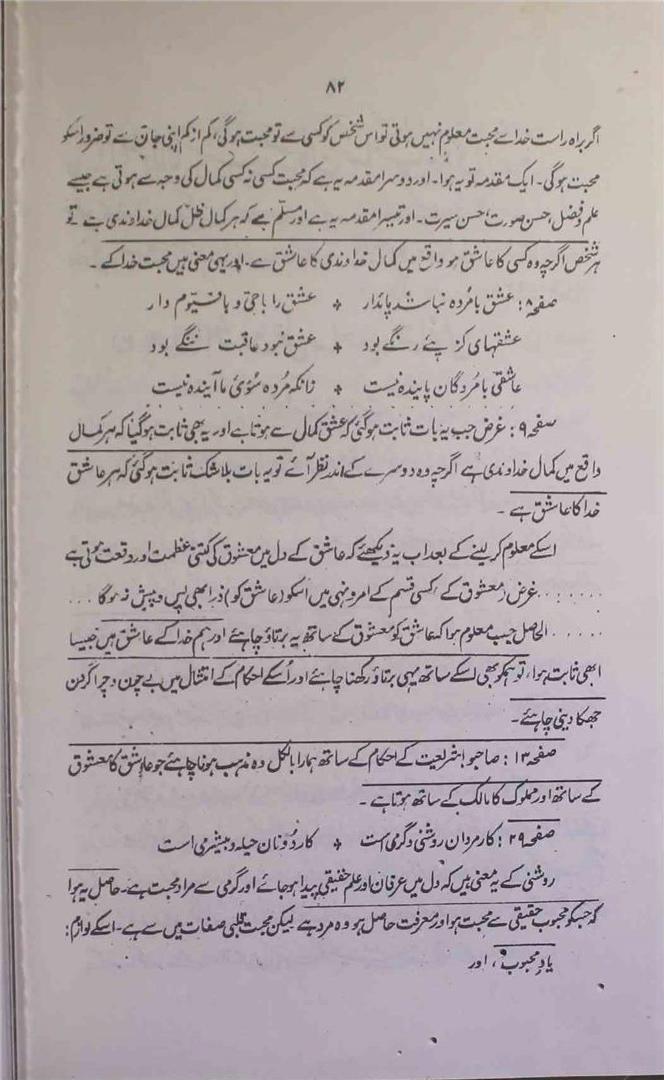 ۸۲
اگر براہ راست خدا سے محبت معلوم نہیں ہوتی تو اس شخص کو کسی سے تو محبت ہوگی، کم از کم اپنی جان سے تو ضرور اسکو
محبت ہوگی۔ ایک مقدمہ تو یہ ہوا۔ اور دوسرا مقدمہ یہ ہے کہ محبت کسی نہ کسی کمال کی وجہ سے ہوتی ہے جیسے
علم و فضل، حسن صورت، حسن سیرت۔ اور تیسرا مقدمہ یہ ہے اور مسلّم ہے کہ ہر کمال ظلِ کمال خداوندی ہے تو
ہر شخص اگرچہ وہ کسی کا عاشق ہو واقع میں کمال خداوندی کا عاشق ہے۔ اور یہی معنی ہیں محبت خدا کے۔
صفحہ ۸: عشق با مُردہ نباشد پائدار ٭ عشق را باحیّ و با قیّوم دار
عشقہای کز پئے رنگے بود ٭ عشق نبود عاقبت ننگے بود
عاشقی با مُردگان پایندہ نیست ٭ زانکہ مُردہ سُوئ ما آیندہ نیست
صفحہ ۹: غرض جب یہ بات ثابت ہوگئی کہ عشق کمال سے ہوتا ہے اور یہ بھی ثابت ہوگیا کہ ہر کمال
واقع میں کمال خداوندی ہے اگرچہ وہ دوسرے کے اندر نظر آئے تو یہ بات بلا شک ثابت ہوگئی کہ ہر عاشق
خدا کا عاشق ہے۔
اسکے معلوم کر لینے کے بعد اب یہ دیکھئے کہ عاشق کے دل میں معشوق کی کتنی عظمت اور وقعت ہوتی ہے
...... غرض (معشوق کے) کسی قسم کے امر و نہی میں اسکو (عاشق کو) ذرا بھی پس و پیش نہ ہوگا ...
..... الحاصل جب معلوم ہوا کہ عاشق کو معشوق کے ساتھ یہ برتاؤ چاہئے اور ہم خدا کے عاشق ہیں جیسا
ابھی ثابت ہوا، تو ہمکو بھی اسکے ساتھ یہی برتاؤ رکھنا چاہئے اور اُسکے احکام کے امتثال میں بے چون و چرا گردن
جھکا دینی چاہئے۔
صفحہ ۱۳: صاحبو! شریعت کے احکام کے ساتھ ہمارا بالکل وہ مذہب ہونا چاہئے جو عاشق کا معشوق
کے ساتھ اور مملوک کا مالک کے ساتھ ہوتا ہے۔
صفحہ ۲۹: کار مردان روشنی و گرمی است ٭ کار دُونان حیلہ و بیشرمی است
روشنی کے یہ معنی ہیں کہ دل میں عرفان اور علم حقیقی پیدا ہو جائے اور گرمی سے مراد محبت ہے۔ حاصل یہ ہوا
کہ جسکو محبوب حقیقی سے محبت ہو اور معرفت حاصل ہو وہ مرد ہے لیکن محبت قلبی صفات میں سے ہے۔ اسکے لوازم:
یادِ محبوب، اور